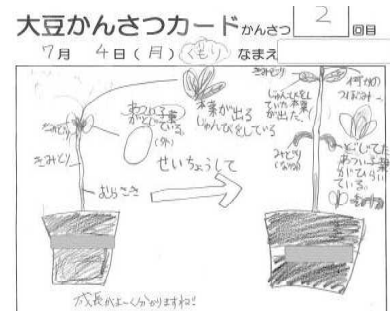 大豆かんさつカード かんさつ 2 回目
7月 4日(月) くもり なまえ
きみどり
あつい子葉
がとじている。
(外)
きみどり
むらさき
本葉が出る
じゅんびをしている
せいちょうして
きみどり
じゅんびをし
ていた本葉
が出た。
みどり
(なか)
何かの
つぼみ
とじてた
あつい子葉
がひらい
ている。
成長がよーく分かりますね!!